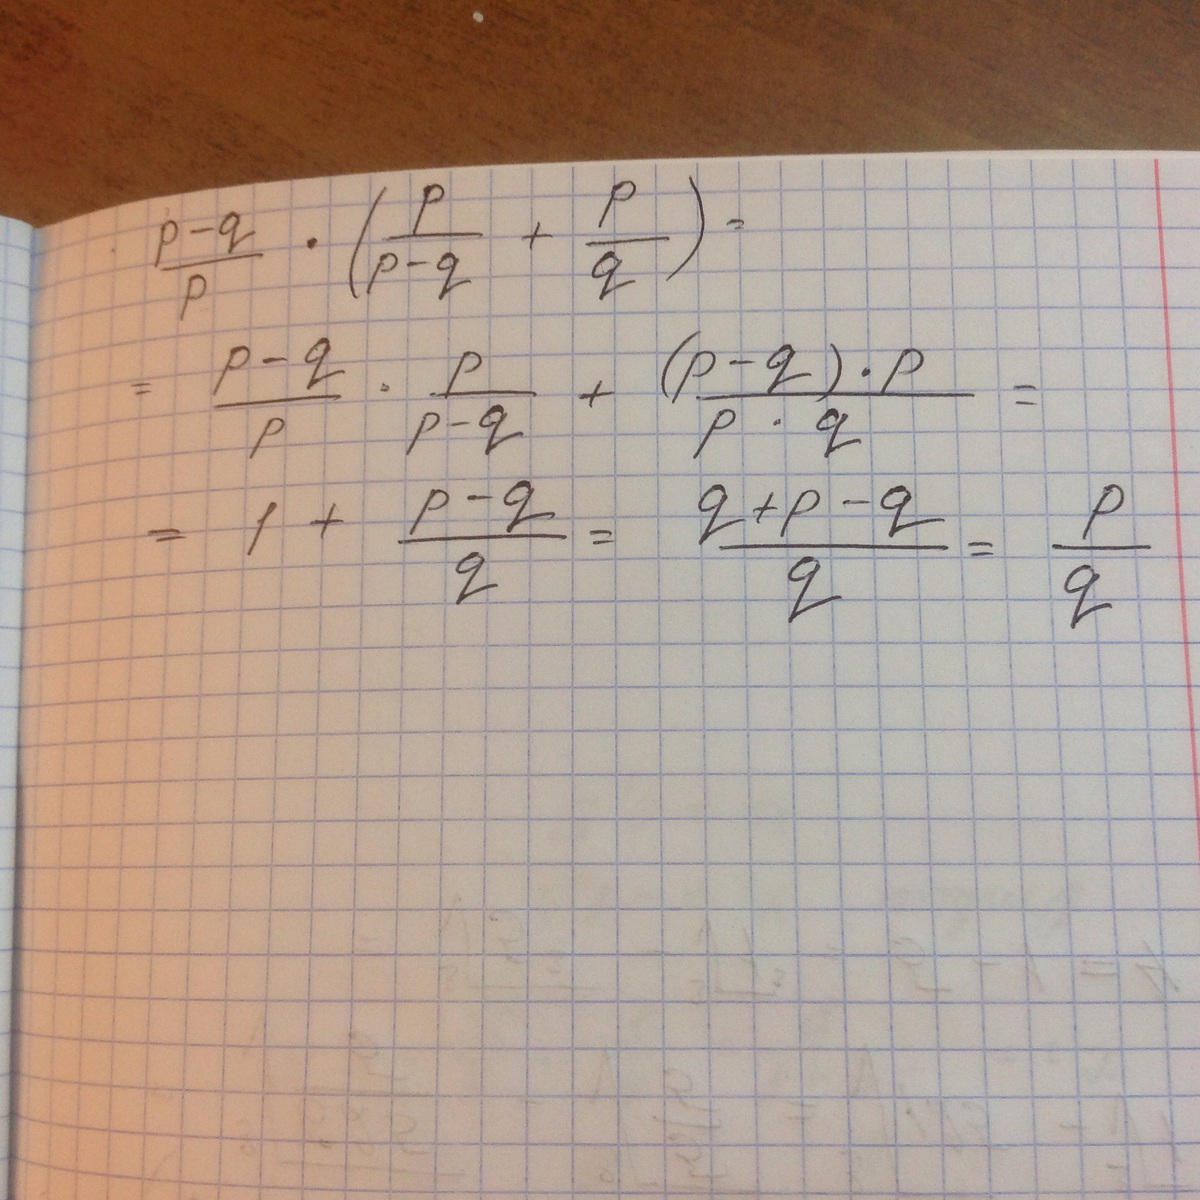 (p-q)/p · (p/(p-q) + p/q) =
= (p-q)/p · p/(p-q) + ((p-q)·p)/(p·q) =
= 1 + (p-q)/q = (q+p-q)/q = p/q